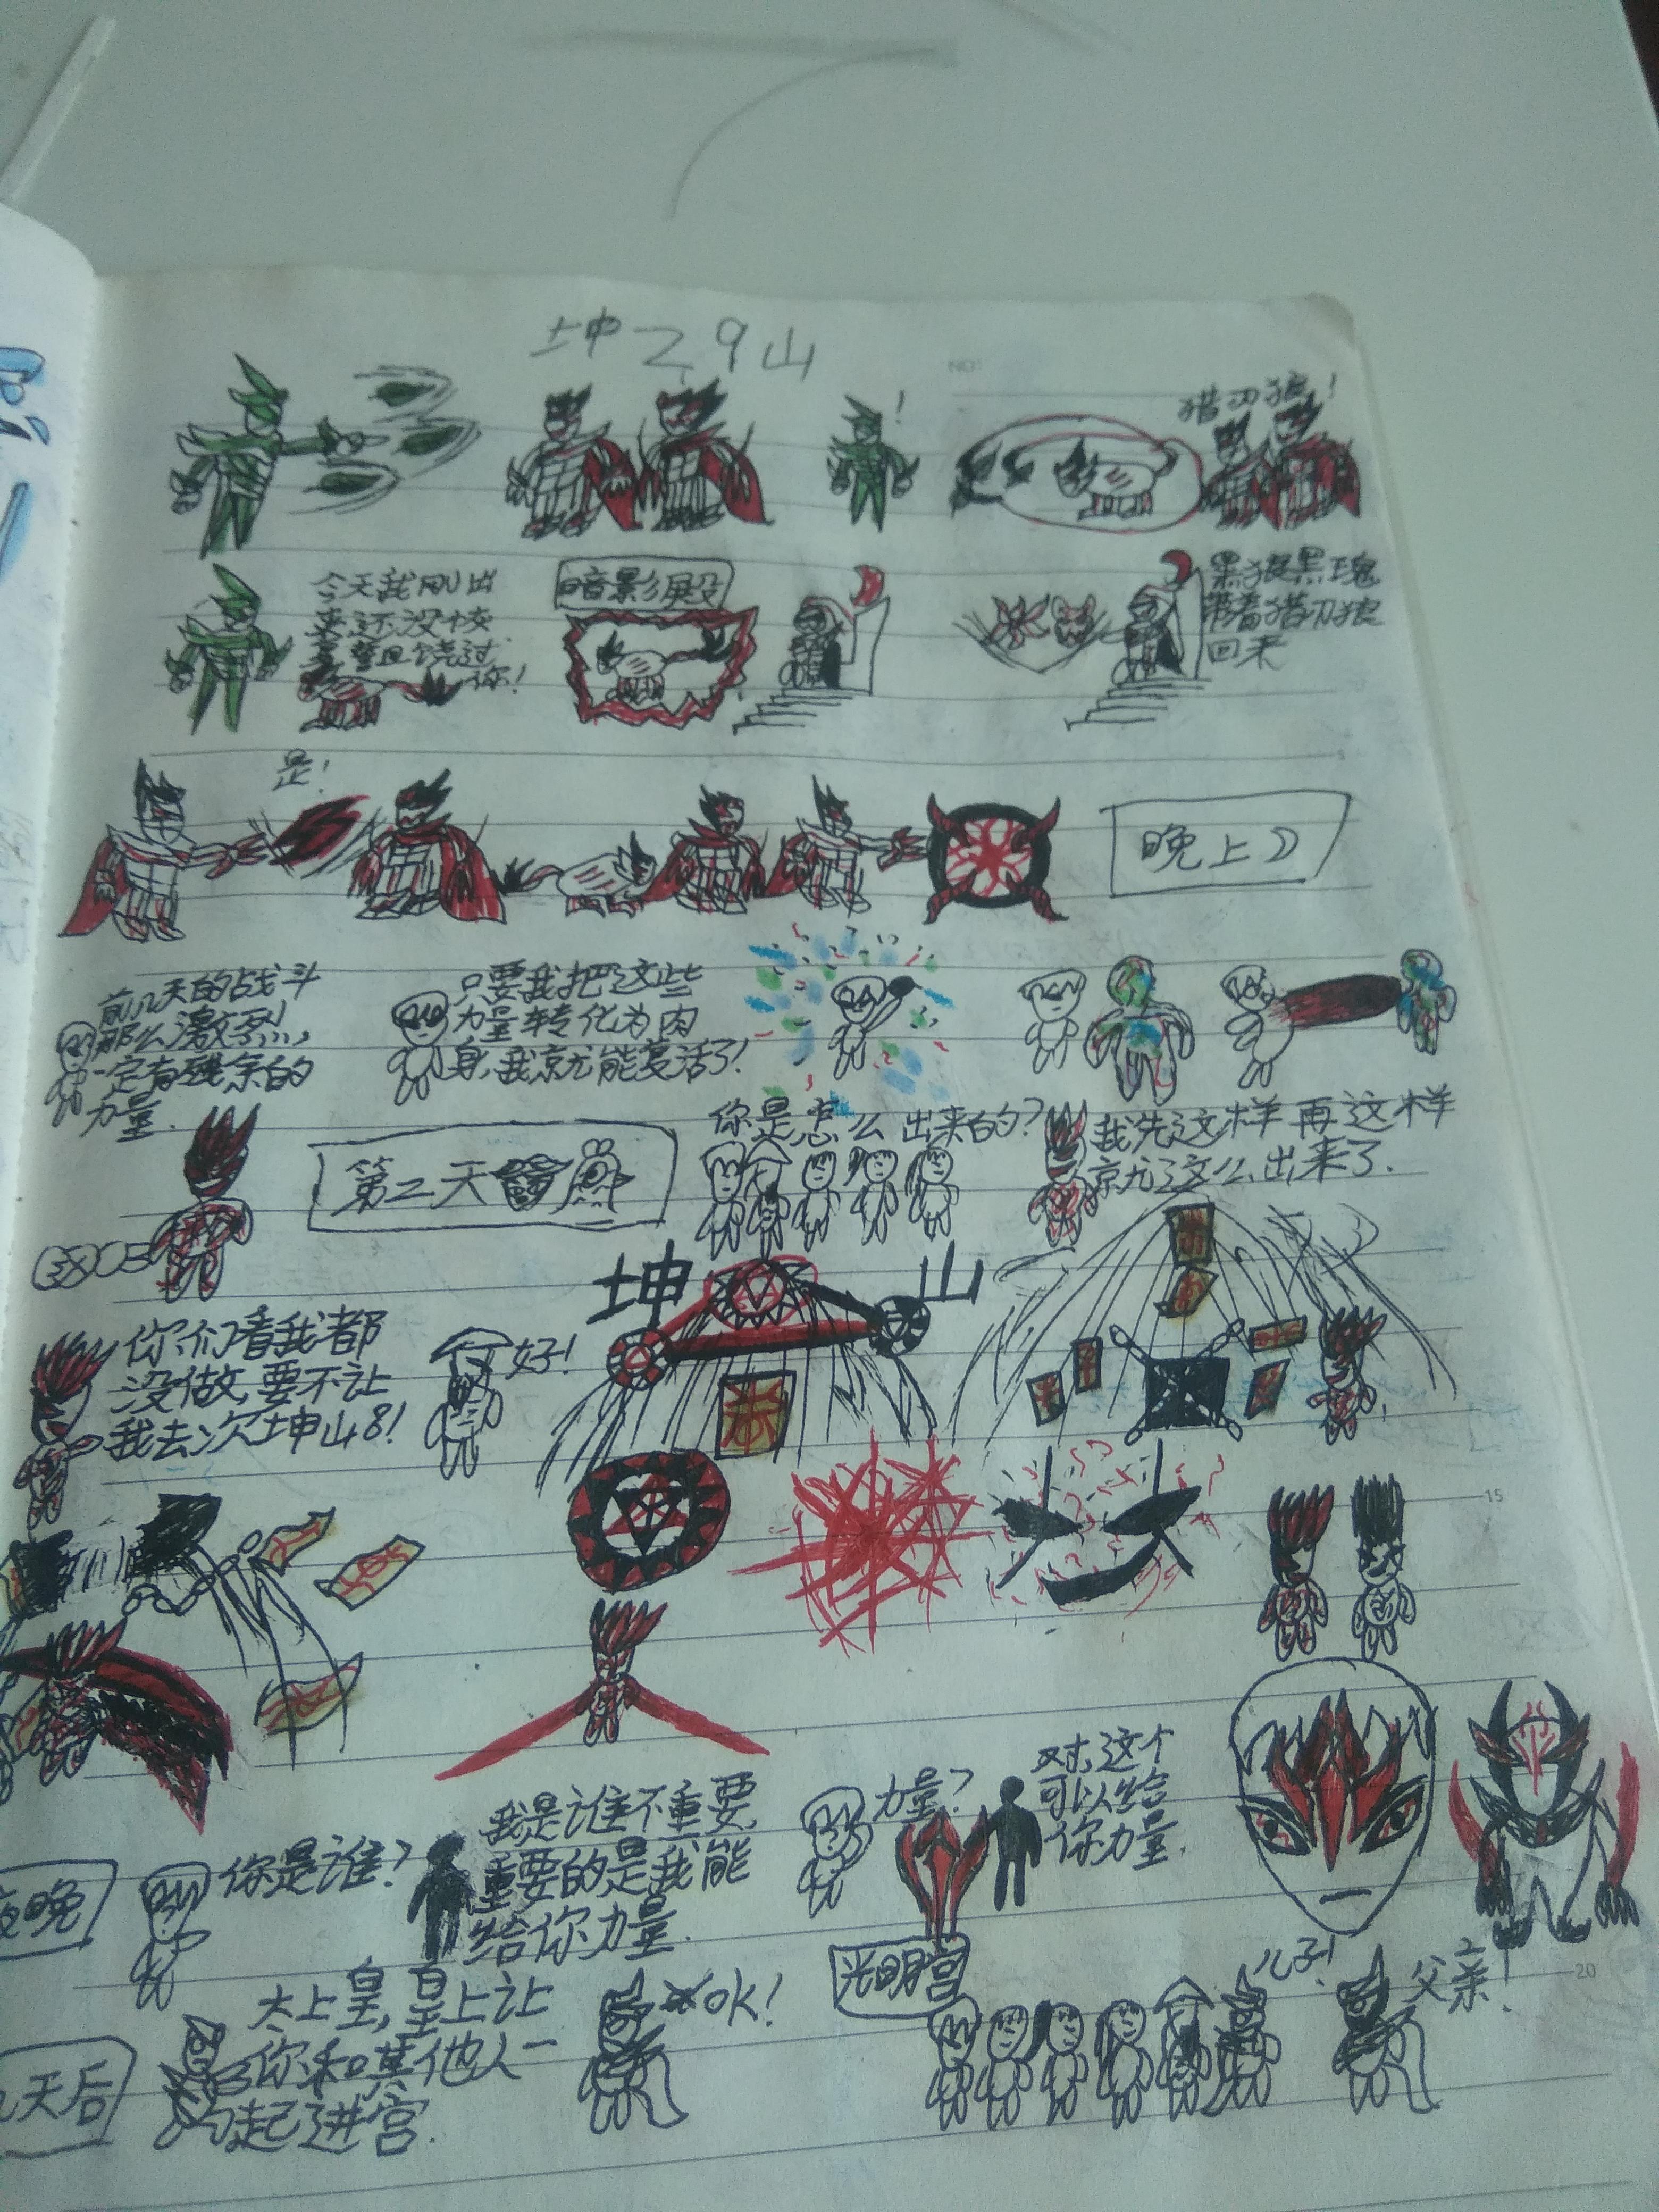 坤之9山
NO:
!
猎刃狼!
今天我刚出
来还没恢
暂且饶过
你!
暗影殿
黑狼黑瑰
带着猎刃狼
回来
是!
晚上
前几天的战斗
那么激烈,
一定有残余的
力量.
只要我把这些
力量转化为肉
身,我就能复活了!
第二天
你是怎么出来的?
我先这样再这样
就这么出来了.
你们看我都
没做,要不让
我去次坤山8!
好!
坤 山
15
夜晚
你是谁?
我是谁不重要,
重要的是我能
给你力量.
力量?
对,这个
可以给
你力量.
天后
太上皇,皇上让
你和其他人一
起进宫.
OK!
光明宫
儿子!
父亲!
20